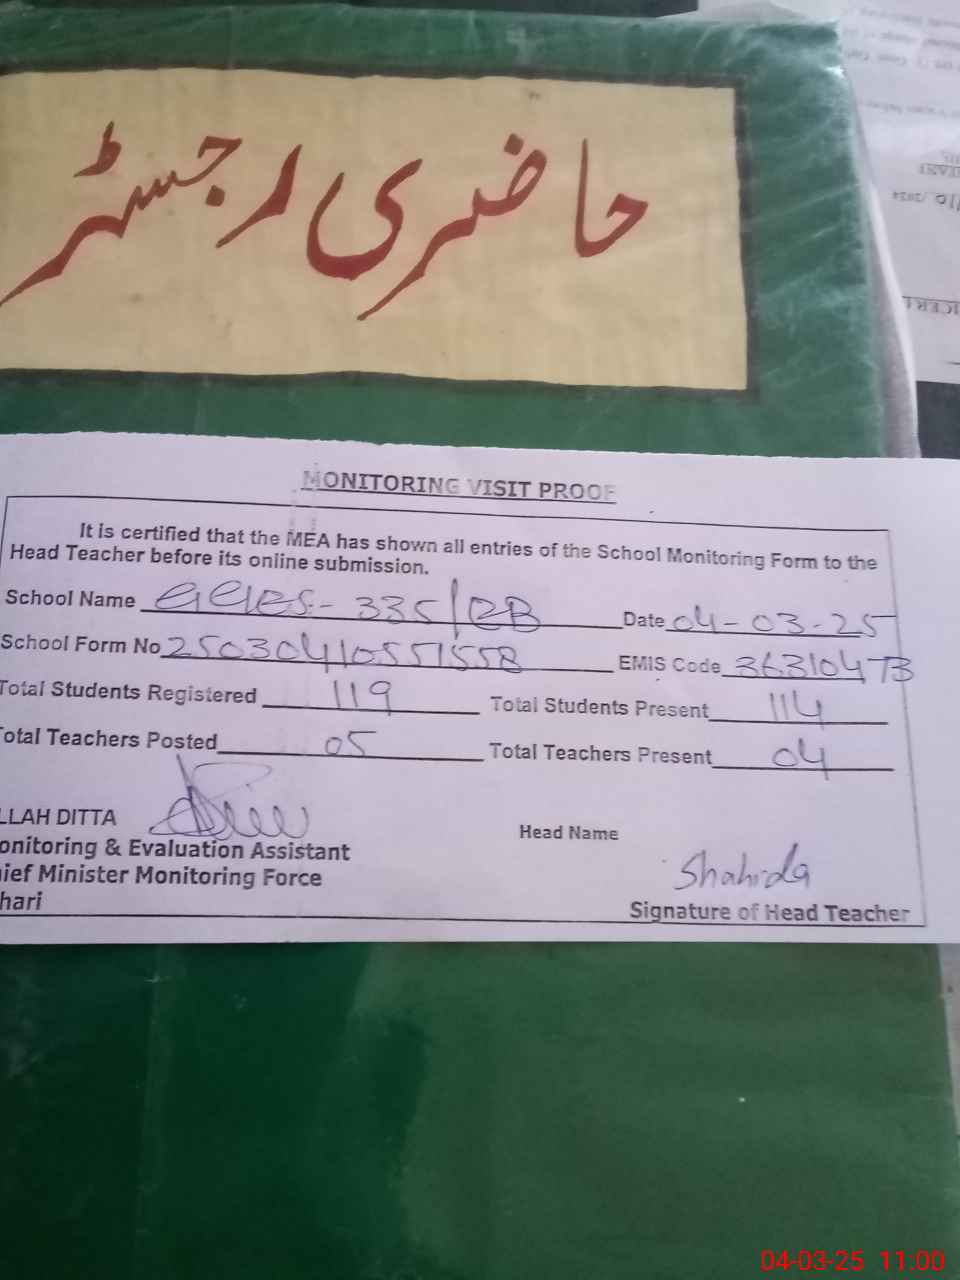 حاضری رجسٹر
MONITORING VISIT PROOF
It is certified that the MEA has shown all entries of the School Monitoring Form to the
Head Teacher before its online submission.
School Name 335/EB Date 04-03-25
School Form No 25030410551558 EMIS Code 36310473
Total Students Registered 119 Total Students Present 114
Total Teachers Posted 05 Total Teachers Present 04
LLAH DITTA
Head Name
onitoring & Evaluation Assistant
hief Minister Monitoring Force
Shahida
hari
Signature of Head Teacher
04-03-25 11:00